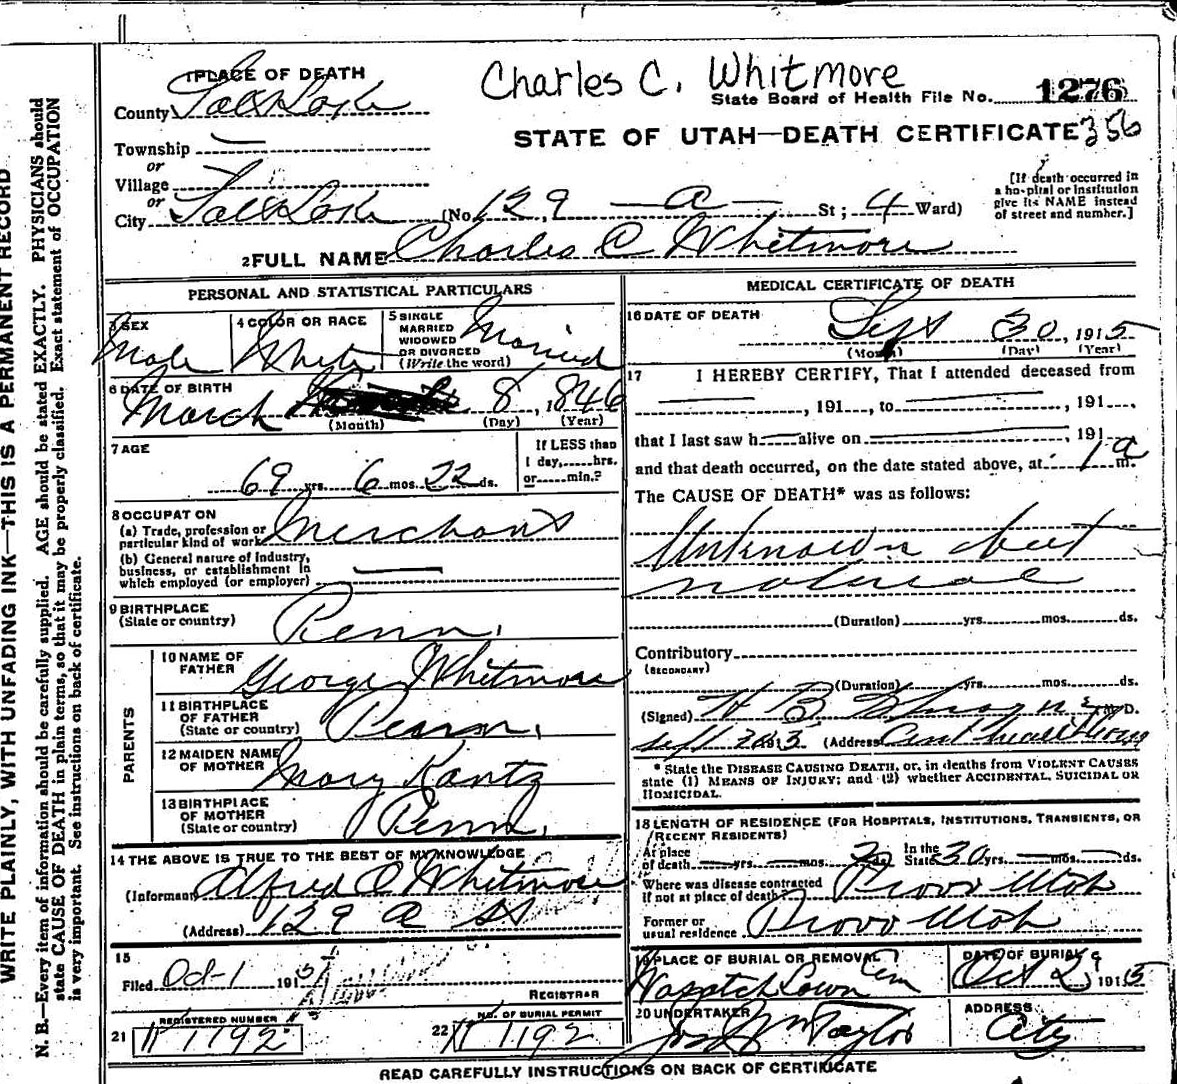 WRITE PLAINLY, WITH UNFADING INK—THIS IS A PERMANENT RECORD
N. B.—Every item of information should be carefully supplied. AGE should be stated EXACTLY. PHYSICIANS should
state CAUSE OF DEATH in plain terms, so that it may be properly classified. Exact statement of OCCUPATION
is very important. See instructions on back of certificate.
Charles C. Whitmore
1 PLACE OF DEATH
State Board of Health File No. 1276
County Salt Lake
STATE OF UTAH—DEATH CERTIFICATE 356
Township —
or
Village
or
City Salt Lake (No. 129 — A — St; 4 Ward)
[If death occurred in
a hospital or institution
give its NAME instead
of street and number.]
2 FULL NAME Charles C Whitmore
PERSONAL AND STATISTICAL PARTICULARS
3 SEX
Male
4 COLOR OR RACE
White
5 SINGLE
MARRIED
WIDOWED
OR DIVORCED
(Write the word)
Married
6 DATE OF BIRTH
March 8, 1846
(Month) (Day) (Year)
7 AGE
69 yrs. 6 mos. 22 ds.
If LESS than
1 day,......hrs.
or......min.?
8 OCCUPATION
(a) Trade, profession or
particular kind of work Merchant
(b) General nature of industry,
business, or establishment in
which employed (or employer) —
9 BIRTHPLACE
(State or country)
Penn.
PARENTS
10 NAME OF
FATHER
George Whitmore
11 BIRTHPLACE
OF FATHER
(State or country)
Penn.
12 MAIDEN NAME
OF MOTHER
Mary Kantz
13 BIRTHPLACE
OF MOTHER
(State or country)
Penn.
14 THE ABOVE IS TRUE TO THE BEST OF MY KNOWLEDGE
(Informant) Alfred C Whitmore
(Address) 129 A St
15
Filed Oct-1 1915
REGISTRAR
21 REGISTERED NUMBER
1192
22 NO. OF BURIAL PERMIT
1192
MEDICAL CERTIFICATE OF DEATH
16 DATE OF DEATH
Sept 30, 1915
(Month) (Day) (Year)
17 I HEREBY CERTIFY, That I attended deceased from
—, 191...., to —, 191....,
that I last saw h— alive on —, 191
and that death occurred, on the date stated above, at 1 a m.
The CAUSE OF DEATH* was as follows:
Unknown but
natural
(Duration)........yrs........mos........ds.
Contributory
(SECONDARY)
(Duration)........yrs........mos........ds.
(Signed) H B M.D.
Sept 1915 (Address)
* State the DISEASE CAUSING DEATH, or, in deaths from VIOLENT CAUSES
state (1) MEANS OF INJURY; and (2) whether ACCIDENTAL, SUICIDAL OR
HOMICIDAL.
18 LENGTH OF RESIDENCE (FOR HOSPITALS, INSTITUTIONS, TRANSIENTS, OR
RECENT RESIDENTS)
At place
of death — yrs. — mos. 2 ds. In the State 30 yrs. — mos. — ds.
Where was disease contracted
if not at place of death? Provo Utah
Former or
usual residence Provo Utah
19 PLACE OF BURIAL OR REMOVAL
Wasatch Lawn Cem
DATE OF BURIAL
Oct 2, 1915
20 UNDERTAKER
Jos Wm Taylor
ADDRESS
City
READ CAREFULLY INSTRUCTIONS ON BACK OF CERTIFICATE